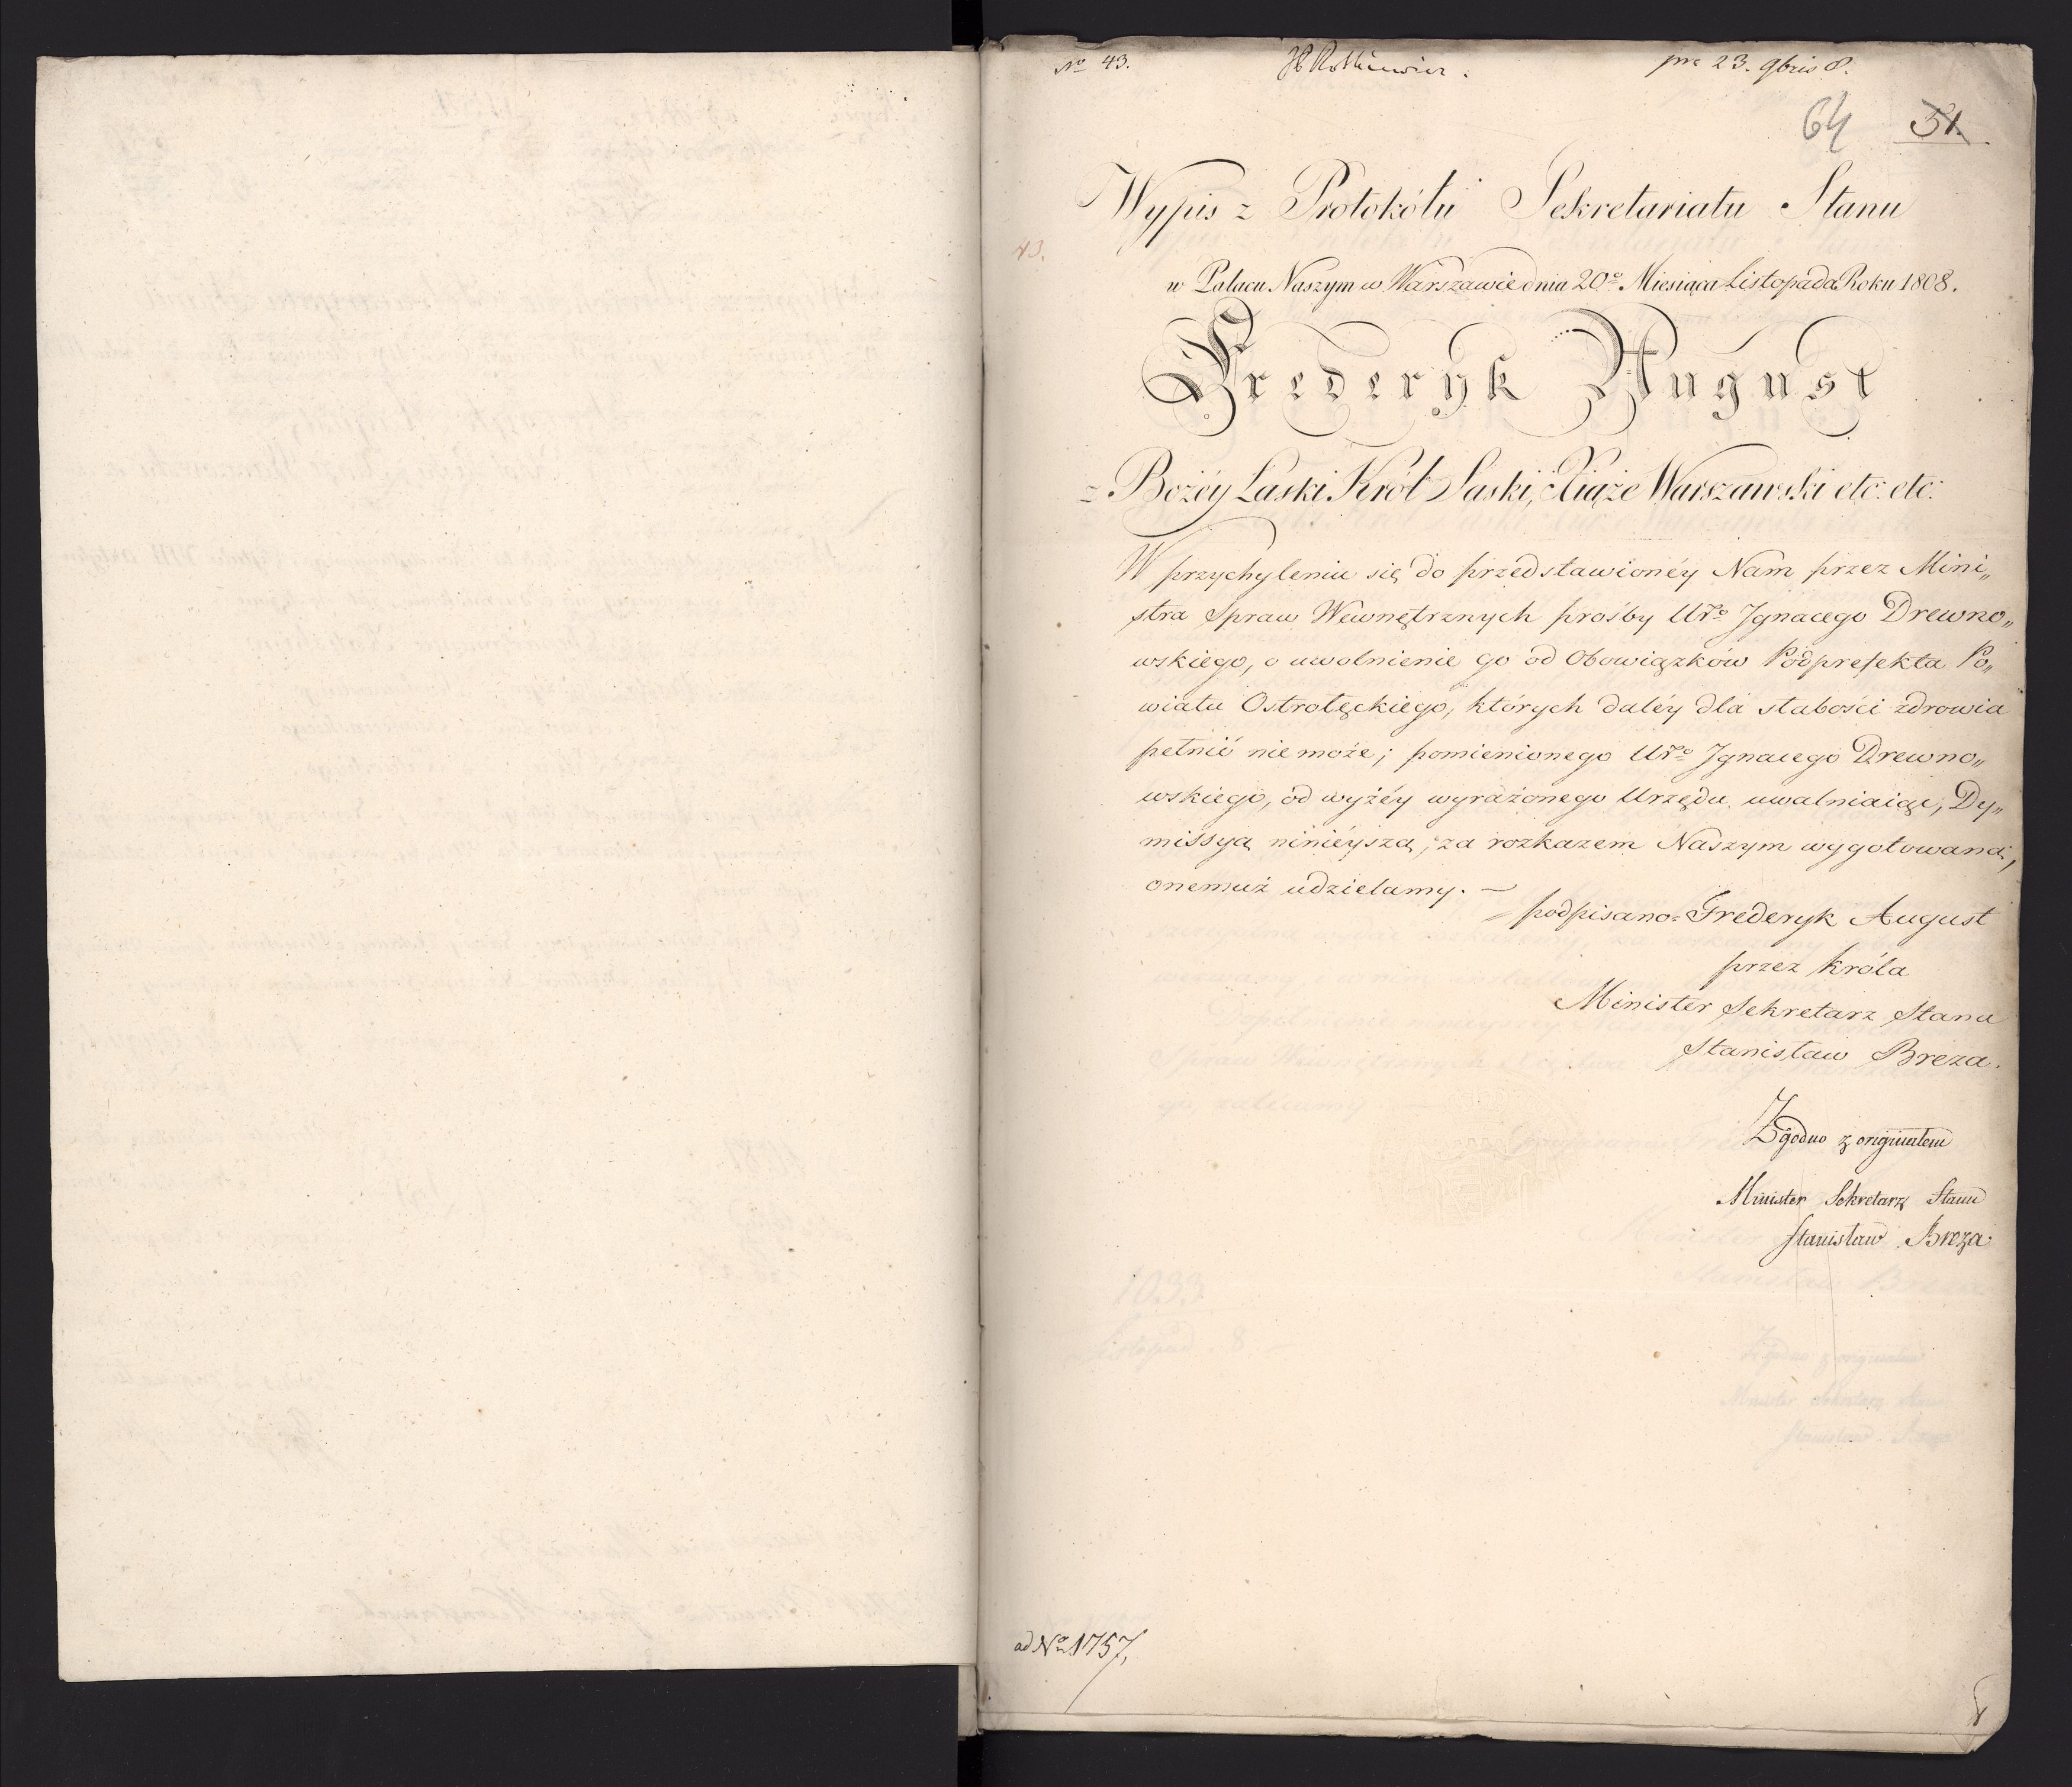 No 43.
pre 23. 9bris 8.
64 51.
Wypis z Protokółu Sekretariatu Stanu
43.
w Pałacu Naszym w Warszawie dnia 20o Miesiąca Listopada Roku 1808.
Frederyk August
z Bożéy Łaski Król Saski, Xiąże Warszawski etc: etc:
W przychyleniu się do przedstawionéy Nam przez Mini„
stra Spraw Wewnętrznych prośby Uro Jgnacego Drewno„
wskiego, o uwolnienie go od Obowiązków Podprefekta Po„
wiatu Ostrołęckiego, których daléy dla słabości zdrowia
pełnić nie może; pomienionego Uro Jgnacego Drewno„
wskiego, od wyżéy wyrażonego Urzędu uwalniaiąc, Dy„
missyą ninieyszą, za rozkazem Naszym wygotowaną,
onemuż udzielamy. —
podpisano: Frederyk August
przez Króla
Minister Sekretarz Stanu
Stanisław Breza.
Zgodno z originałem
Minister Sekretarz Stanu
Stanisław Breza
ad No 1757,